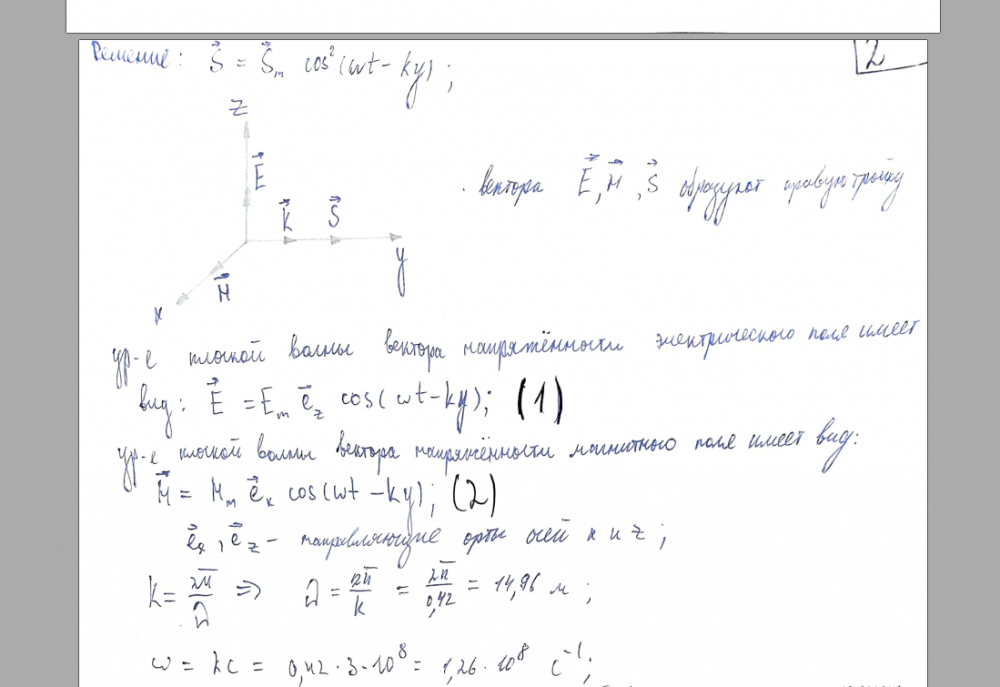 Решение: S⃗ = S⃗ₘ cos²(ωt - ky);
2
z
E⃗
k⃗ S⃗
y
H⃗
x
вектора E⃗, H⃗, S⃗ образуют правую тройку
ур-е плоской волны вектора напряжённости электрического поля имеет
вид: E⃗ = Eₘ e⃗_z cos(ωt - ky); (1)
ур-е плоской волны вектора напряжённости магнитного поля имеет вид:
H⃗ = Hₘ e⃗ₓ cos(ωt - ky); (2)
e⃗ₓ, e⃗_z - направляющие орты осей x и z;
k = 2π/λ ⇒ λ = 2π/k = 2π/0,42 = 14,96 м;
ω = kc = 0,42·3·10⁸ = 1,26·10⁸ c⁻¹;